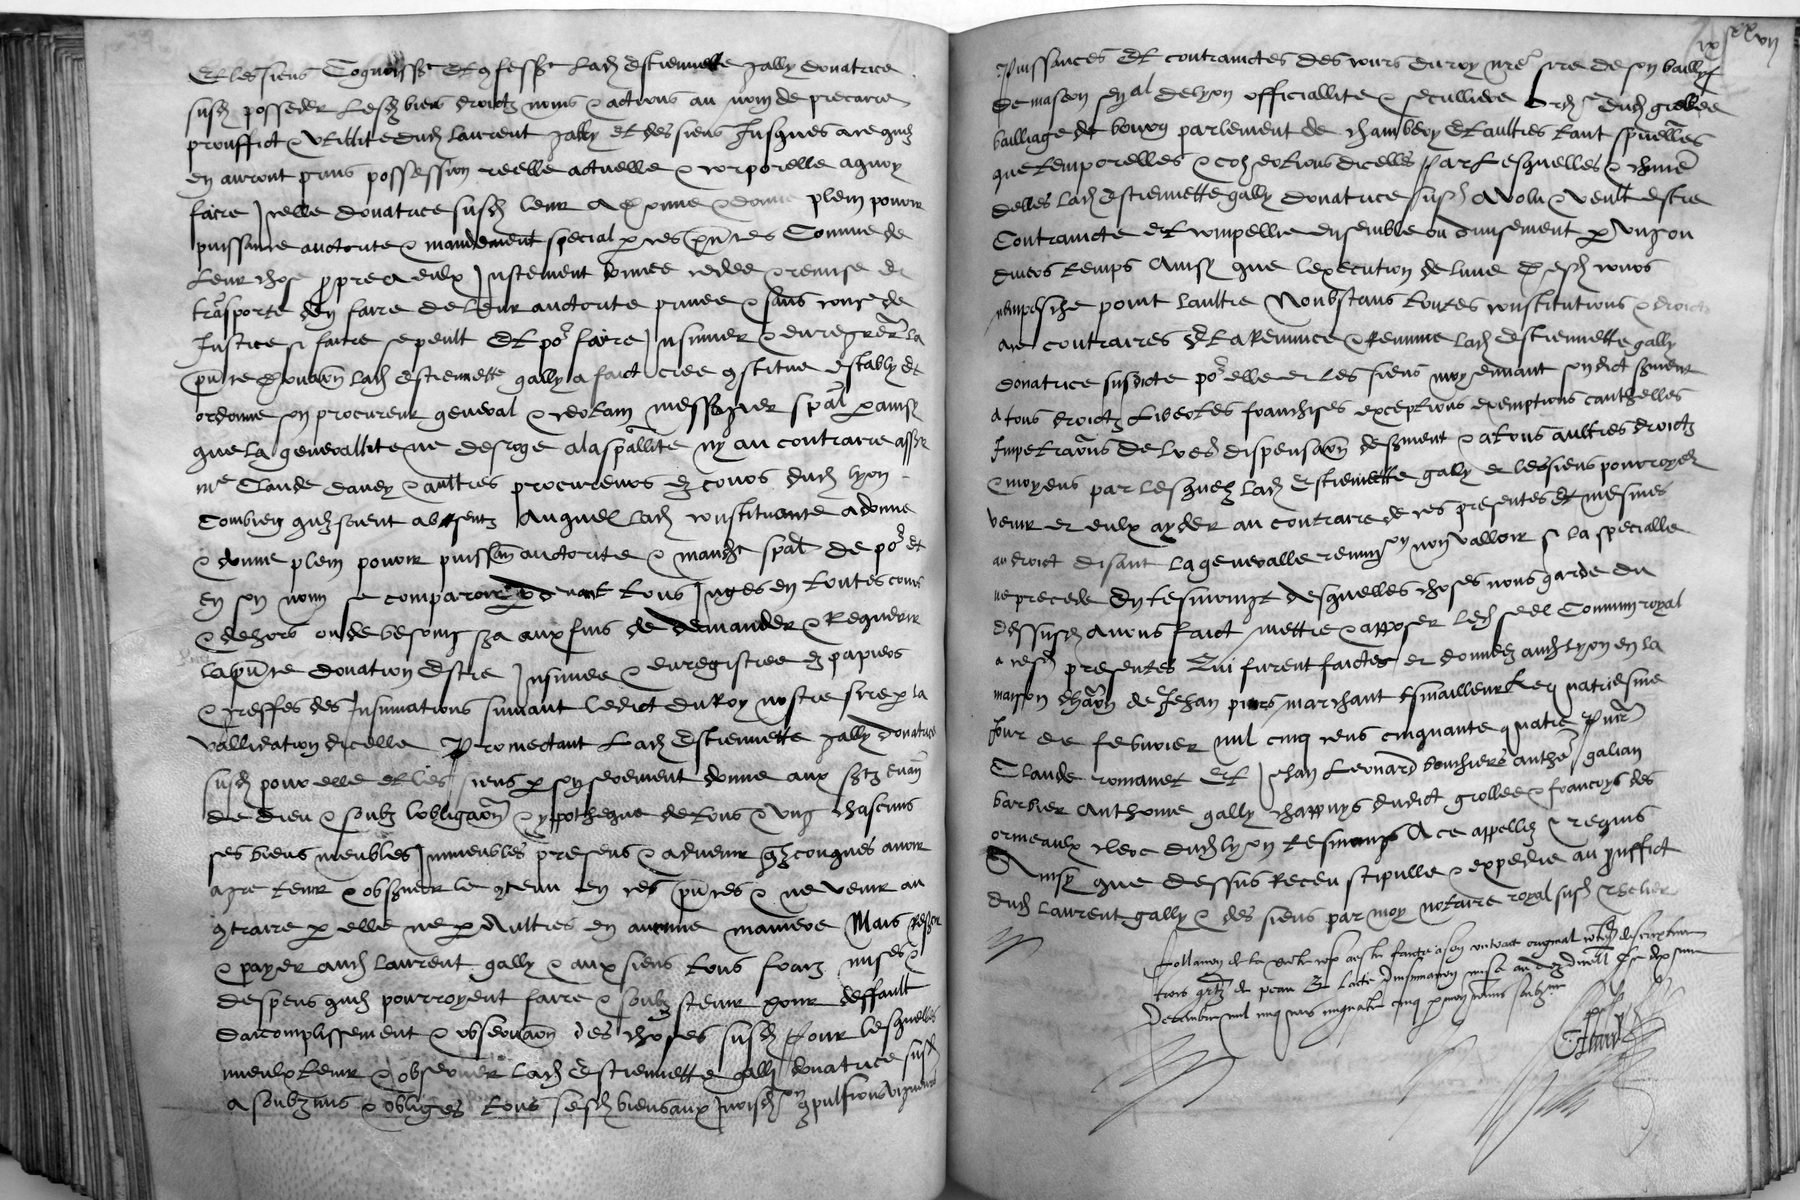 Et les siens Cognoissẽt Et ꝯfessẽt lad Estiennette gally donatrice
susd posseder lesd biens droictz noms & actions au nom de precaire
prouffict & utillite dud laurent gally Et des siens Jusques a ce quilz
en auront prins possession reelle actuelle & corporelle a quoy
faire Icelle donatrice susd leur a donne & donne plein pouoir
puissance auctorite & mandement special p ces pñtes Comme de
leur chose propre a eulx Justement donnee cedee & remise et
trãsporte den faire de leur auctorite priuee & sans cource de
Justice si faire se peult Et por faire Insinuer & enregrer la
pñte donaon lad Estiennette gally a faict cree ꝯstitue estably et
ordonne son procureur general & certain messagier spãl p ainsy
que la generallite ne desroge a la spãllite ny au contraire assr
me Claude dauey & aultres procureurs es cours dud lyon
Combien quilz soient absentz Auquel lad constituante a donne
& donne plein pouoir puissan auctorite & mandt spãl de por et
en son nom se comparoir p deuant tous Juges en toutes cours
& dehors ou de besoing sera aux fins de demander & Requerir
la pñte donation Estre Insinuee & enregistree es papiers
& greffes des Insinuations suiuant ledict du Roy nostre sire p la
vallidation dicelle Promectant lad Estiennette gally donatrice
susd pour elle et les siens p son serement donne aux stz euan
de dieu & soubz lobligaon & ypotheque de tous & ung chascuns
ses biens meubles Immeubles presens & aduenir quelzconques auoir
a gre tenir & obseruer le ꝯtenu en ces pñtes & ne venir au
ꝯtraire p elle ne p Aultres en aucune maniere Mais
& payer aud laurent gally & aux siens tous fraiz mises &
despens quilz pourroyent faire & soubstenir pour deffault
dacomplissement & obseruaon des choses susd pour lesquelles
mieulx tenir & obseruer lad Estiennette gally donatrice susd
a soubzmis & obliges tous sesd biens aux ꝯpulsions
Puissances Et contrainctes des cours du roy nre sire de son bailly
de mascon senal de lyon officiallite & seculliere dud grollee
bailliage de bourg parlement de chambery Et aultres tant spuelles
que temporelles & dicelles Par lesquelles & chune
delles lad Estiennette gally donatrice susd A volu & veult estre
Contraincte et compellie ensemble ou diuisement p Ung ou
diuers temps Ainsy que lexecution de lune desd cours
nempesche point laultre Nonobstans toutes constitutions & droictz
a ce contraires Et a Renunce & Renunce lad Estiennette gally
donatrice susdicte por elle et les siens moyennant sondict serment
a tous droictz libertes franchises exceptions exemptions cauthelles
Impetraons de lres dispensaon de serment & a tous aultres droictz
& moyens par lesquelz lad Estiennette gally et les siens pourroyent
venir et eulx ayder au contraire de ces presentes Et mesmes
au droict disant la generalle renun non valloir si la specialle
ne precede En tesmoingt desquelles choses nous garde du
dessusd Auons faict mettre & apposer led seel Commun royal
a cesd presentes Qui furent faictes et donnees aud lyon en la
maison dhaon de Jehan marchant le quatriesme
Jour de febvrier mil cinq cens cinquante quatre
Claude romanet Et Jehan Leonard bouchiers galian
barbier Anthoine gally chappuys dudict grollee & francoys des
ormeaulx clerc dud lyon tesmoings A ce appellez & requis
Ainsy que dessus Receu stipulle & expedie au prouffict
dud laurent gally & des siens par moy notaire royal susd
Collation de la faicte a son original
trois de peau Et lacte dinsinuation mise au
Decembre mil cinq cens cinquante cinq p moy